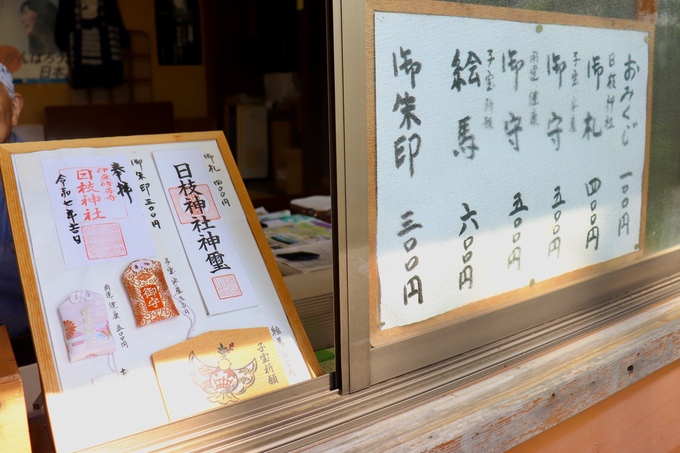 おみくじ 一〇〇円
日枝神社
御札 四〇〇円
子宝・安産
御守 五〇〇円
開運・健康
御守 五〇〇円
子宝祈願
絵馬 六〇〇円
御朱印 三〇〇円
御札 四〇〇円
日枝神社神璽
御朱印 三〇〇円
奉拝
伊豆修善寺
日枝神社
令和七年吉日
子宝・安産
御守
開運・健康 五〇〇円
絵馬
子宝祈願
んばろう
日本